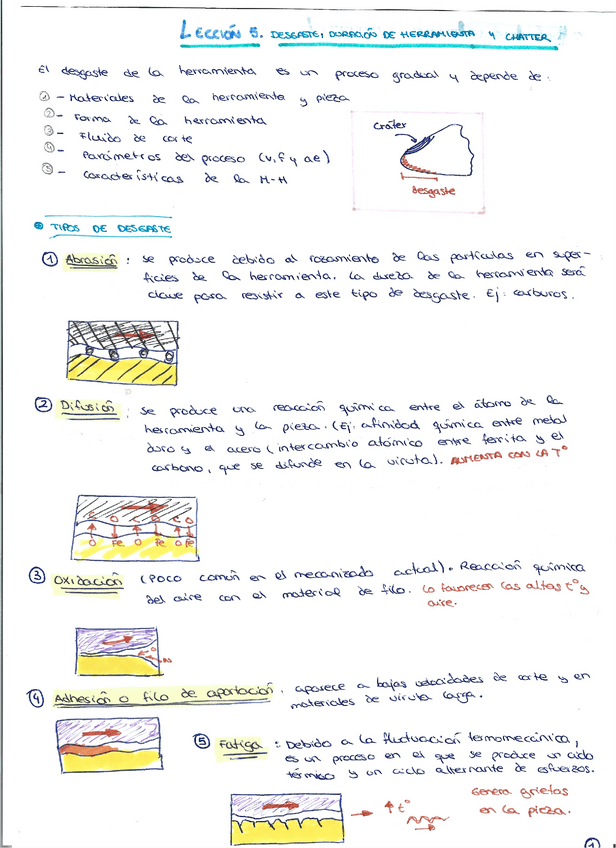 LECCIÓN 5. DESGASTE, DURACIÓN DE HERRAMIENTA Y CHATTER
El desgaste de la herramienta es un proceso gradual y depende de:
① - Materiales de la herramienta y pieza
② - Forma de la herramienta
③ - Fluido de corte
④ - Parámetros del proceso (v, f y ae)
⑤ - Características de la M-H
Cráter
desgaste
TIPOS DE DESGASTE
① Abrasión : se produce debido al rozamiento de las partículas en super-
ficies de la herramienta. La dureza de la herramienta será
clave para resistir a este tipo de desgaste. Ej: carburos.
② Difusión : se produce una reacción química entre el átomo de la
herramienta y la pieza. (Ej. afinidad química entre metal
duro y el acero (intercambio atómico entre ferrita y el
carbono, que se difunde en la viruta). AUMENTA CON LA Tº
C O C O C O
O Fe O Fe O Fe
③ Oxidación (Poco común en el mecanizado actual). Reacción química
del aire con el material de filo. Lo favorecen las altas tº y
aire.
④ Adhesión o filo de aportación. aparece a bajas velocidades de corte y en
materiales de viruta larga.
⑤ Fatiga : Debido a la fluctuación termomecánica,
es un proceso en el que se produce un ciclo
térmico y un ciclo alternante de esfuerzos.
Genera grietas
en la pieza.
→ ↑ tº
①